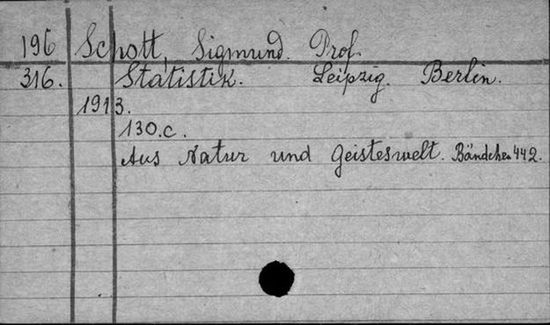 196 Schott, Sigmund. Prof.
316. Statistik. Leipzig. Berlin.
1913.
130.c.
Aus Natur und Geisteswelt. Bändchen 442.